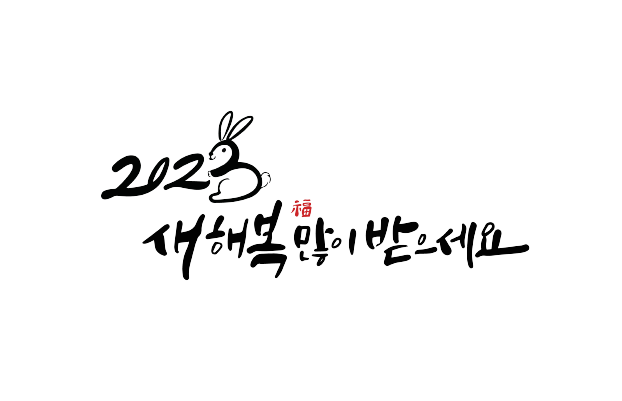 2023
福
새해복 많이 받으세요